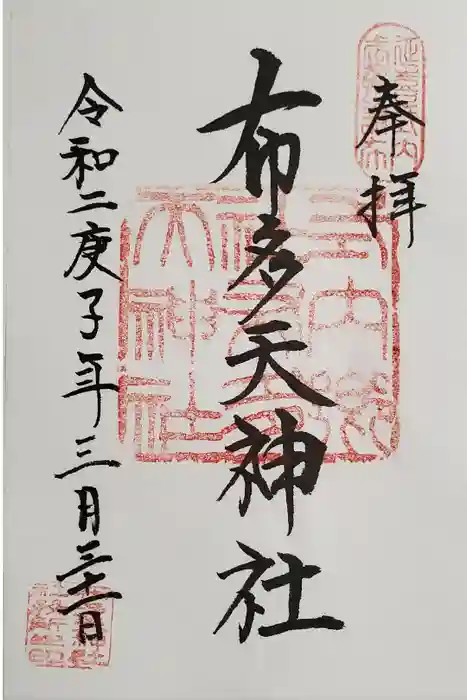 奉拝
布多天神社
令和二庚子年三月三十一日